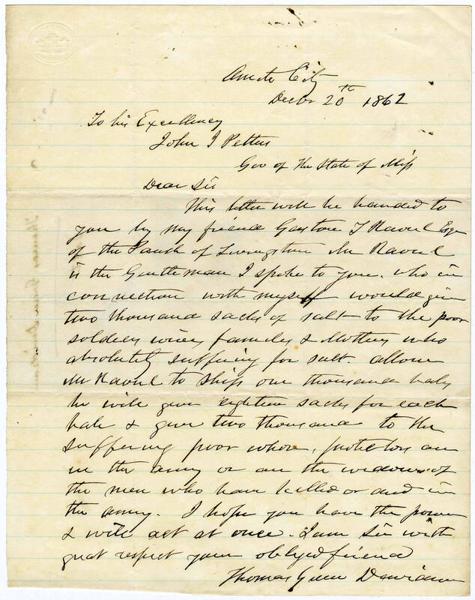 Amite City
Decbr 20th 1862
To his Excellency
John J Pettus
Gov of the State of Miss
Dear Sir
This letter will be handed to
you by my friend Gaston J Raoul Esq
of the Parish of Livingston Mr Raoul
is the Gentleman I spoke to you. who in
connection with myself would give
two thousand sacks of salt to the poor
soldiers wives families & Mothers who
absolutely suffering for salt allow
Mr Raoul to ship one thousand bales
he will give eighteen sacks for each
bale & give two thousand to the
suffering poor whose protectors are
in the army or are the widows of
the men who have killed or died in
the army. I hope you have the power
& will act at once. I am Sir with
great respect your obliged friend
Thomas Green Davidson